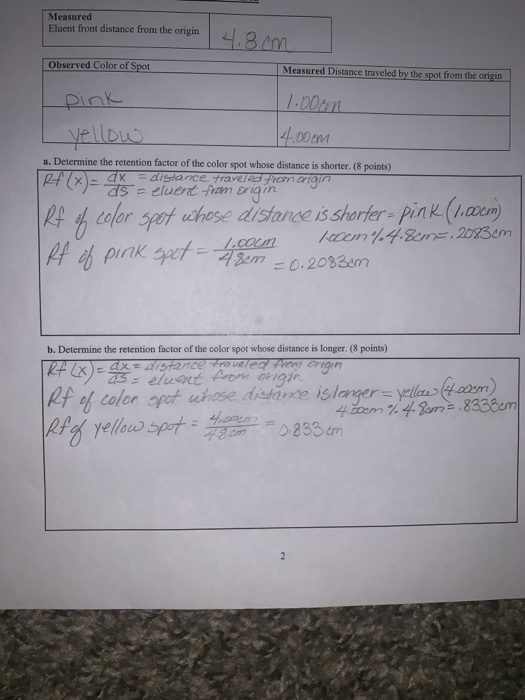 Measured
Eluent front distance from the origin
4.8cm
Observed Color of Spot
Measured Distance traveled by the spot from the origin
pink
1.00cm
yellow
4.00cm
a. Determine the retention factor of the color spot whose distance is shorter. (8 points)
Rf(x)= dx = distance traveled from origin
ds = eluent from origin
Rf of color spot whose distance is shorter = pink (1.00cm)
1.00cm % 4.8cm = .2083cm
Rf of pink spot = 1.00cm
4.8cm = 0.2083cm
b. Determine the retention factor of the color spot whose distance is longer. (8 points)
Rf(x)= dx = distance traveled from origin
ds = eluent from origin
Rf of color spot whose distance is longer = yellow (4.00cm)
4.00cm % 4.8cm = .8333cm
Rf of yellow spot = 4.00cm
4.8cm = 0.833cm
2